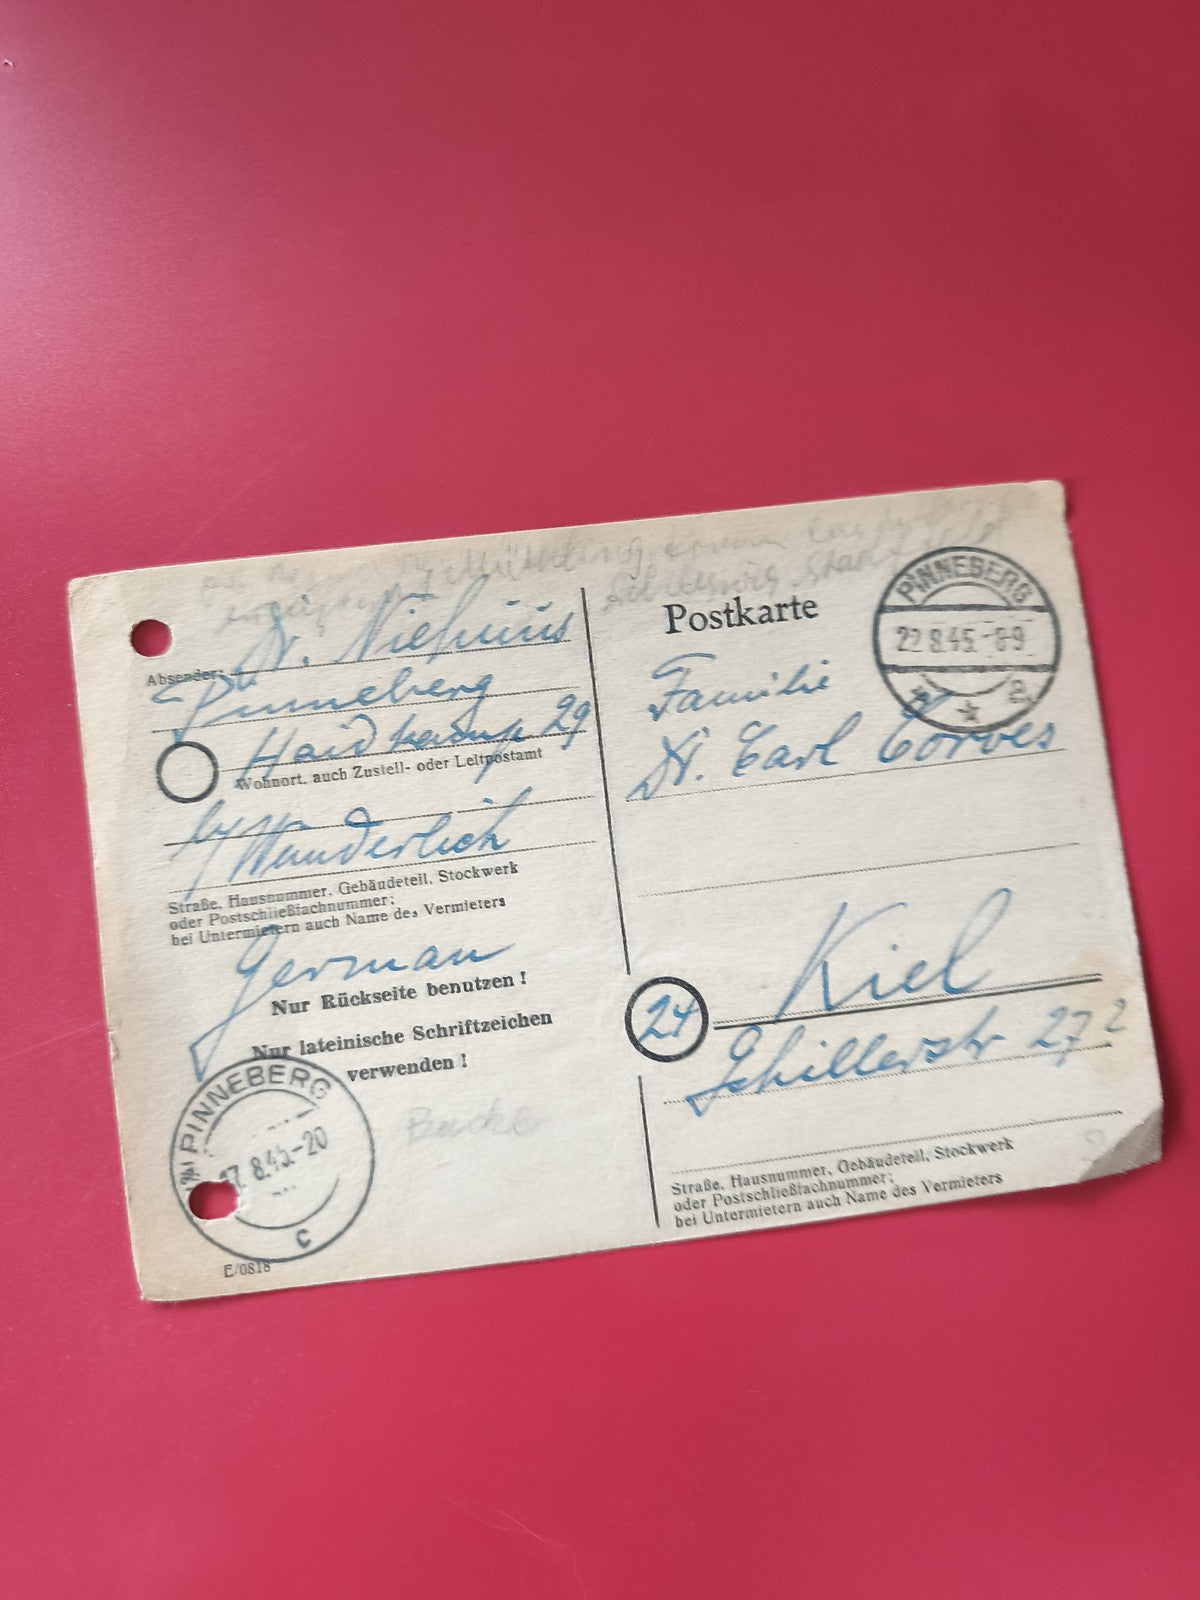 Absender:
Dr. Niehuus
Pinneberg
Haidkamp 29
Wohnort, auch Zustell- oder Leitpostamt
Wunderlich
Straße, Hausnummer, Gebäudeteil, Stockwerk
oder Postschließfachnummer;
bei Untermietern auch Name des Vermieters
German
Nur Rückseite benutzen !
Nur lateinische Schriftzeichen
verwenden !
PINNEBERG
8.45.-20
c
E/0818
Postkarte
PINNEBERG
22.8.45.-8-9
a
Familie
Dr. Carl Corves
Kiel
24
Schillerstr 27 2
Straße, Hausnummer, Gebäudeteil, Stockwerk
oder Postschließfachnummer;
bei Untermietern auch Name des Vermieters